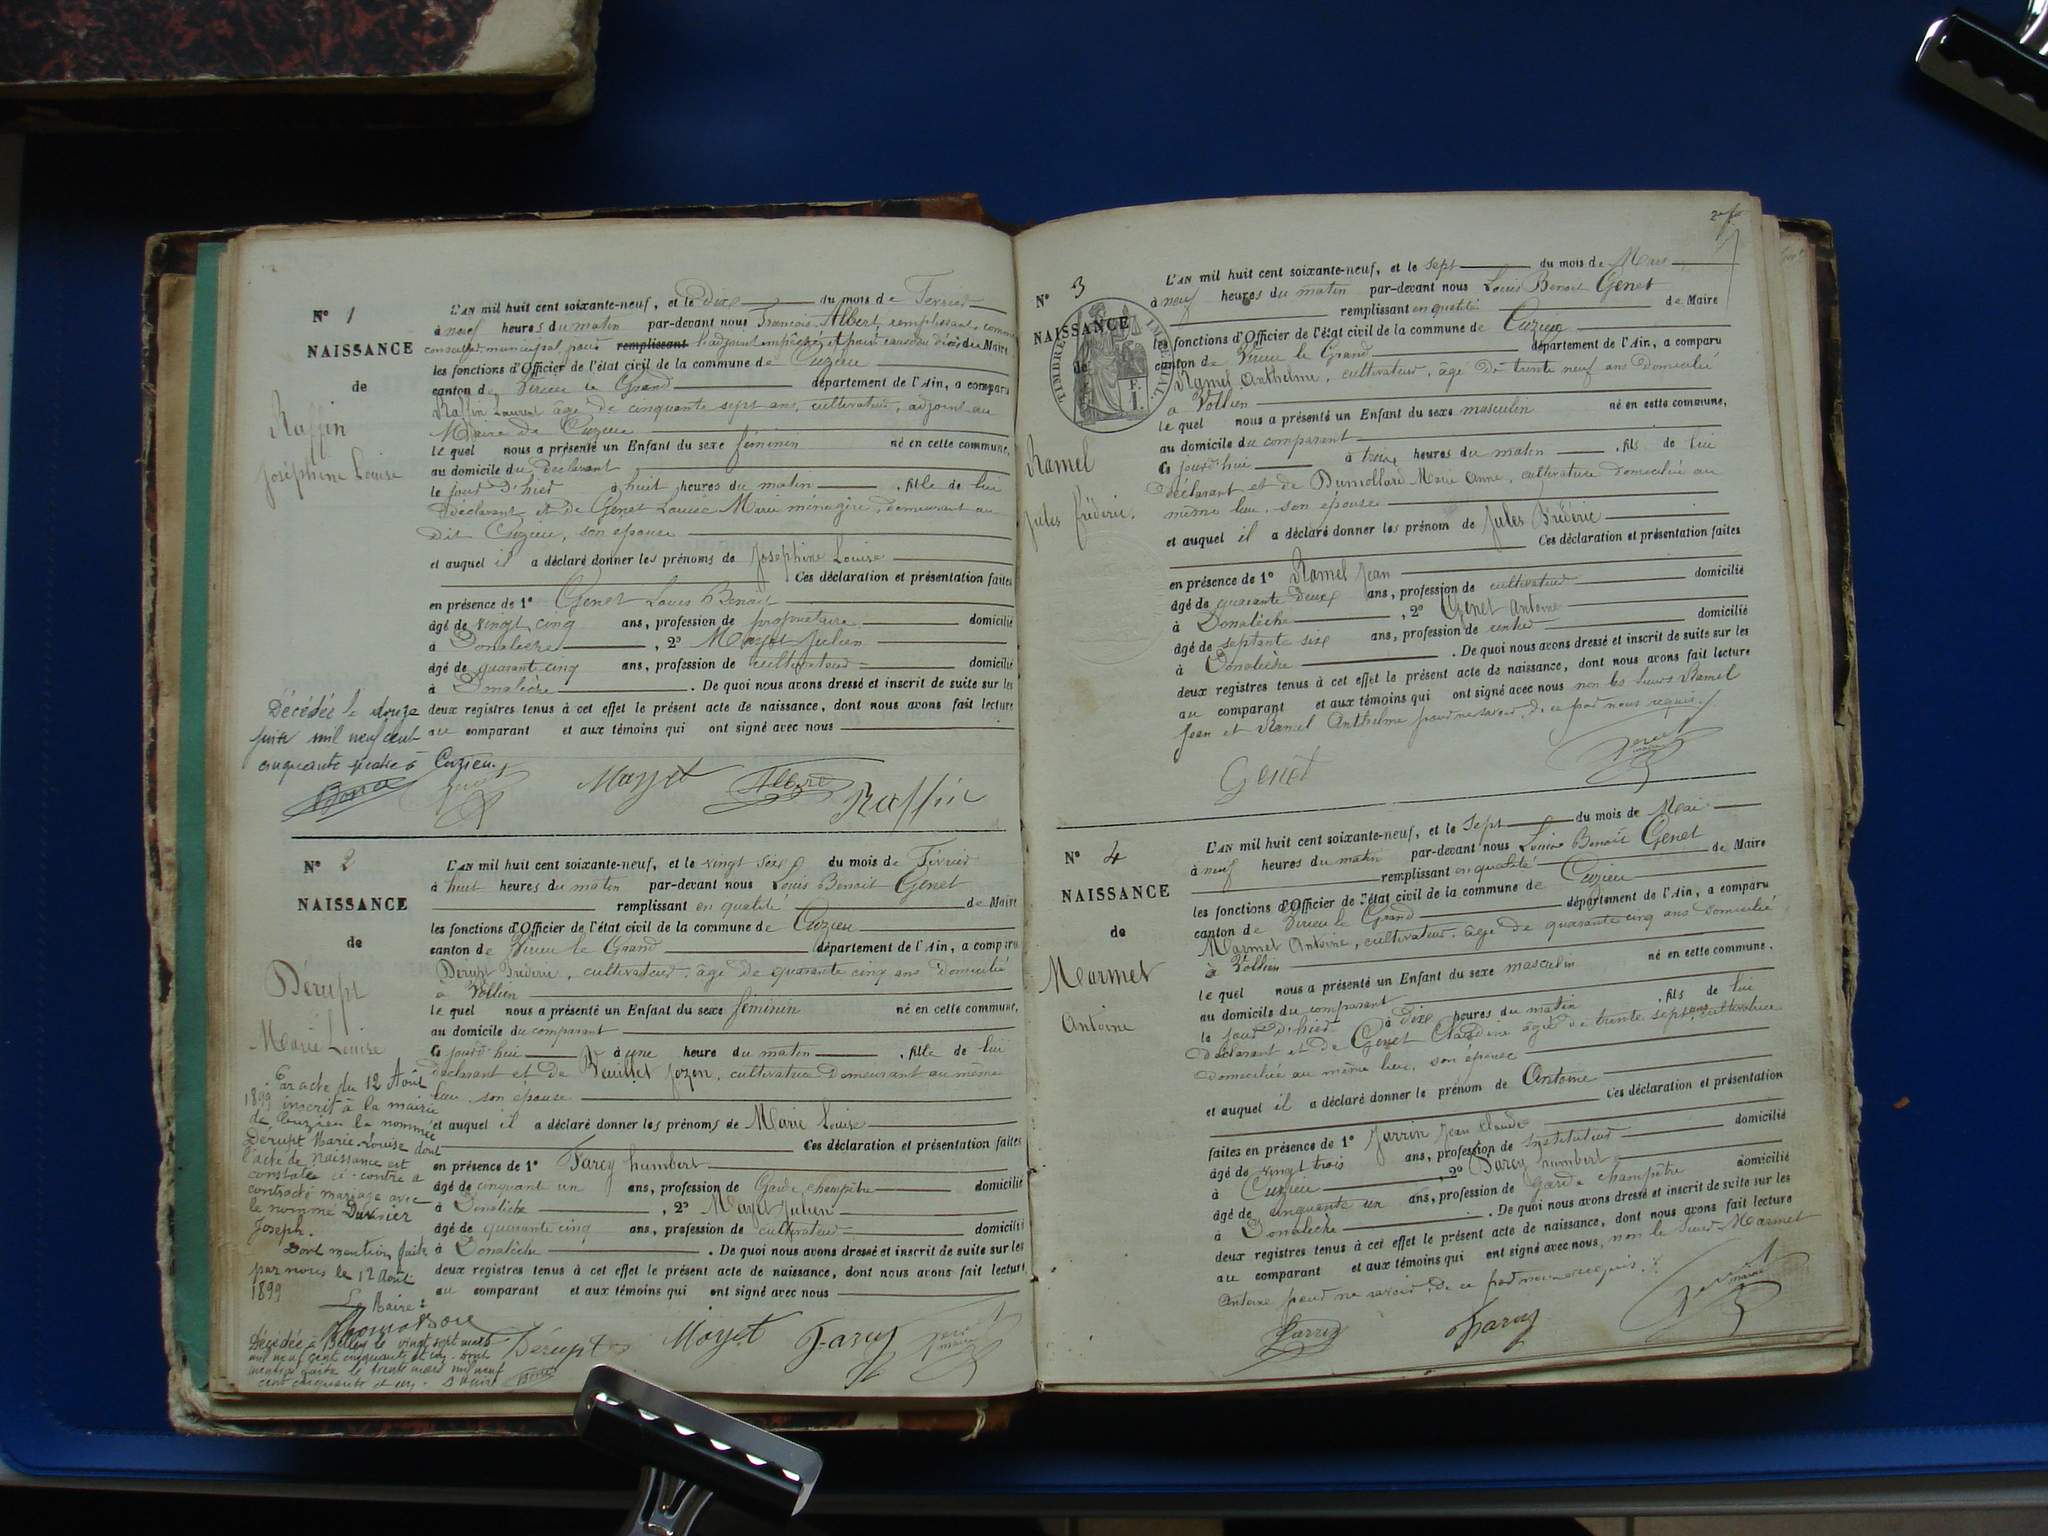 N° 1
NAISSANCE
de
Raffin
Joséphine Louise
L'AN mil huit cent soixante-neuf, et le Dix du mois de Février
à neuf heures du matin par-devant nous François Albert, remplissant comme
conseiller municipal pour remplissant l'adjoint empêché et pour cause du décès du Maire
les fonctions d'Officier de l'état civil de la commune de Cuzieu
canton de Virieu le Grand département de l'Ain, a comparu
Raffin Laurent âgé de cinquante sept ans, cultivateur, adjoint au
Maire de Cuzieu
le quel nous a présenté un Enfant du sexe féminin né en cette commune,
au domicile du déclarant
le jour d'hier à huit heures du matin , fille de lui
déclarant et de Genet Louise Marie ménagère, demeurant au
dit Cuzieu, son épouse
et auquel il a déclaré donner les prénoms de Joséphine Louise
Ces déclaration et présentation faites
en présence de 1° Genet Louis Benoit
âgé de vingt cinq ans, profession de propriétaire domicilié
à Donalèche , 2° Mayet Julien
âgé de quarant cinq ans, profession de cultivateur domicilié
à Donalèche . De quoi nous avons dressé et inscrit de suite sur les
deux registres tenus à cet effet le présent acte de naissance, dont nous avons fait lecture
au comparant et aux témoins qui ont signé avec nous
Décédée le douze
juin mil neuf cent
cinquante quatre à Cuzieu.
Mayet Albert Raffin
N° 2
NAISSANCE
de
Dérupt
Marie Louise
L'AN mil huit cent soixante-neuf, et le vingt six du mois de Février
à huit heures du matin par-devant nous Louis Benoit Genet
remplissant en qualité de Maire
les fonctions d'Officier de l'état civil de la commune de Cuzieu
canton de Virieu le Grand département de l'Ain, a comparu
Dérupt Fréderic, cultivateur, âgé de quarante cinq ans Domicilié
à Vollien
le quel nous a présenté un Enfant du sexe féminin né en cette commune,
au domicile du comparant
Ce jourd'hui à une heure du matin , fille de lui
déclarant et de Veuillet Jozon, cultivatrice demeurant au même
lieu son épouse
et auquel il a déclaré donner les prénoms de Marie Louise
Ces déclaration et présentation faites
en présence de 1° Farcy humbert
âgé de cinquant un ans, profession de Garde champêtre domicilié
à Donalèche , 2° Mayet Julien
âgé de quarante cinq ans, profession de cultivateur domicilié
à Donalèche . De quoi nous avons dressé et inscrit de suite sur les
deux registres tenus à cet effet le présent acte de naissance, dont nous avons fait lecture
au comparant et aux témoins qui ont signé avec nous
Par acte du 12 Août
1899 inscrit à la mairie
de Cuzieu la nommée
Dérupt Marie-Louise dont
l'acte de naissance est
constaté ci-contre a
contracté mariage avec
le nommé
Joseph.
Dont mention faite
par nous le 12 Août
1899
Le Maire:
Décédée à Belley le vingt sept mars
mil neuf cent cinquante et un. Dont
mention faite le trente mars mil neuf
cent cinquante et un.
Dérupt Mayet Farcy Genet maire
2e fo
N° 3
NAISSANCE
de
TIMBRE IMPÉRIAL
Ramel
Jules frédéric.
L'AN mil huit cent soixante-neuf, et le sept du mois de Mars
à neuf heures du matin par-devant nous Louis Benoit Genet
remplissant en qualité de Maire
les fonctions d'Officier de l'état civil de la commune de Cuzieu
canton de Virieu le Grand département de l'Ain, a comparu
Ramel Anthelme, cultivateur, âgé de trente neuf ans domicilié
à Vollien
le quel nous a présenté un Enfant du sexe masculin né en cette commune,
au domicile du comparant
Ce jourd'hui à trois heures du matin , fils de lui
déclarant et de Dumollard Marie Anne, cultivatrice domiciliée au
même lieu, son épouse
et auquel il a déclaré donner les prénom de Jules Frédéric
Ces déclaration et présentation faites
en présence de 1° Ramel Jean
âgé de quarante deux ans, profession de cultivateur domicilié
à Donalèche , 2° Genet Antoine
âgé de septante six ans, profession de rentier domicilié
à Donalèche . De quoi nous avons dressé et inscrit de suite sur les
deux registres tenus à cet effet le présent acte de naissance, dont nous avons fait lecture
au comparant et aux témoins qui ont signé avec nous non les sieurs Ramel
Jean et Ramel Anthelme pour ne savoir, de ce par nous requis.
Genet Genet maire
N° 4
NAISSANCE
de
Marmet
Antoine
L'AN mil huit cent soixante-neuf, et le Sept du mois de Mai
à neuf heures du matin par-devant nous Louis Benoit Genet
remplissant en qualité de Maire
les fonctions d'Officier de l'état civil de la commune de Cuzieu
canton de Virieu le Grand département de l'Ain, a comparu
Marmet Antoine, cultivateur, âgé de quarante cinq ans domicilié
à Vollien
le quel nous a présenté un Enfant du sexe masculin né en cette commune.
au domicile du comparant
le jour d'hier à dix heures du matin , fils de lui
déclarant et de Genet Claudine âgée de trente sept ans, cultivatrice
domiciliée au même lieu, son épouse
et auquel il a déclaré donner le prénom de Antoine
Ces déclaration et présentation
faites en présence de 1° Jarrin Jean Claude
âgé de vingt trois ans, profession de Instituteur domicilié
à Cuzieu , 2° Farcy humbert
âgé de cinquante un ans, profession de garde champêtre domicilié
à Donalèche . De quoi nous avons dressé et inscrit de suite sur les
deux registres tenus à cet effet le présent acte de naissance, dont nous avons fait lecture
au comparant et aux témoins qui ont signé avec nous, non le sieur Marmet
Antoine pour ne savoir, de ce par nous requis.
Jarrin Farcy Genet maire